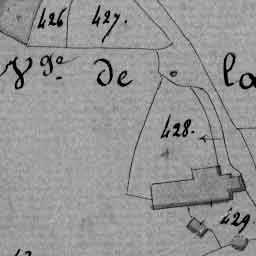 426 427.
Vge. de la
428.
429